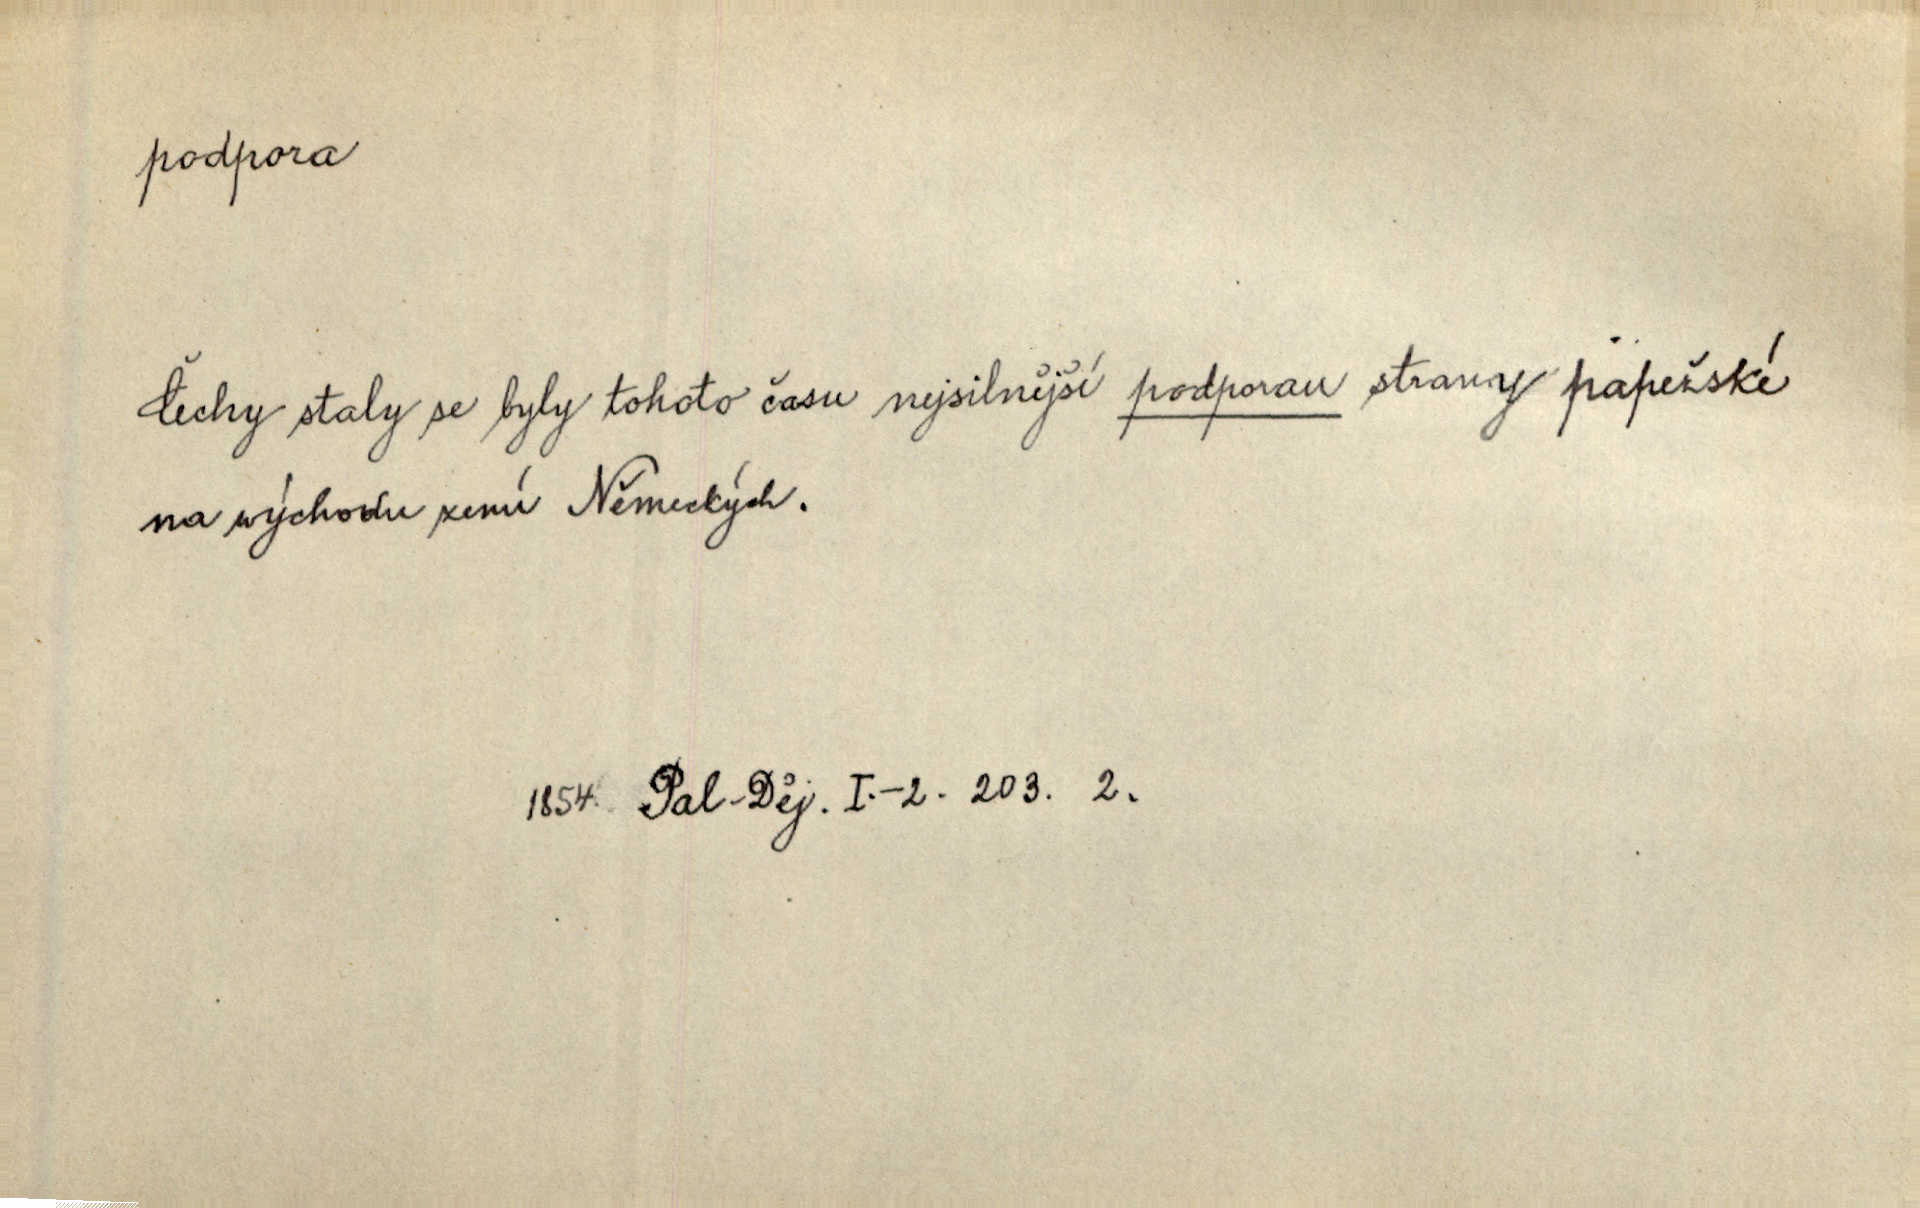 podpora
Čechy staly se byly tohoto času nejsilnější podporau strany papežské
na východu zemí Německých.
1854. Pal-Děj. I.-2. 203. 2.